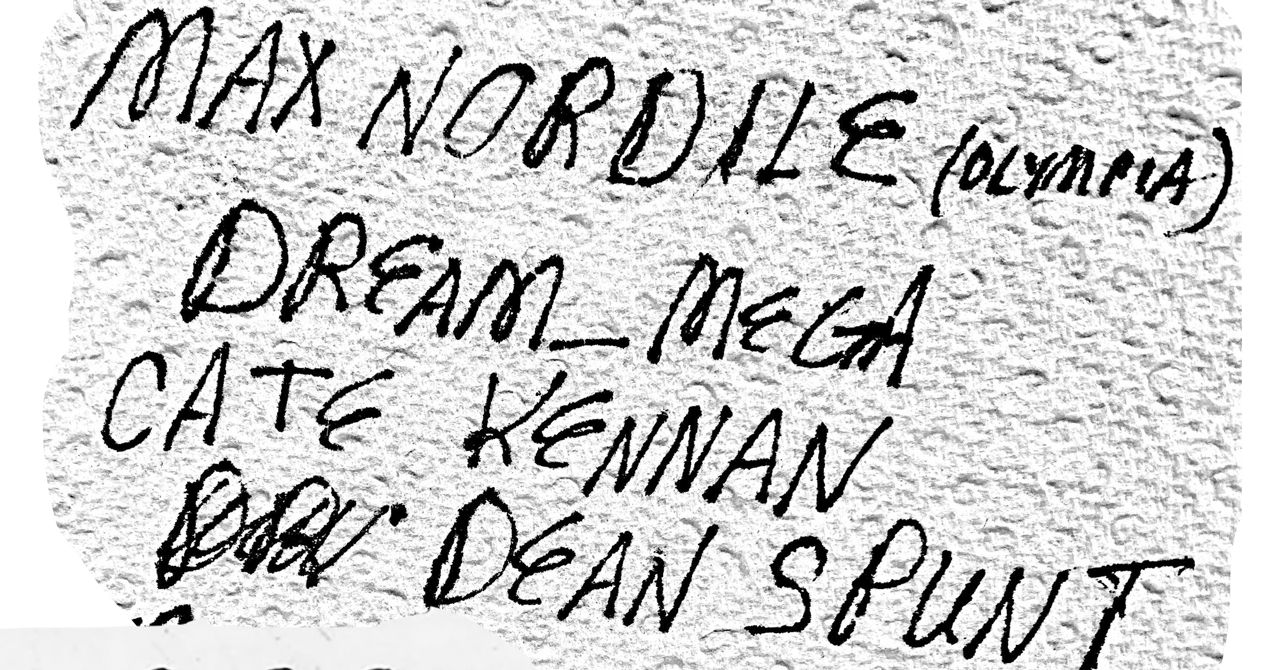 MAX NORDILE (OLYMPIA)
DREAM_MEGA
CATE KENNAN
DEAN SPUNT